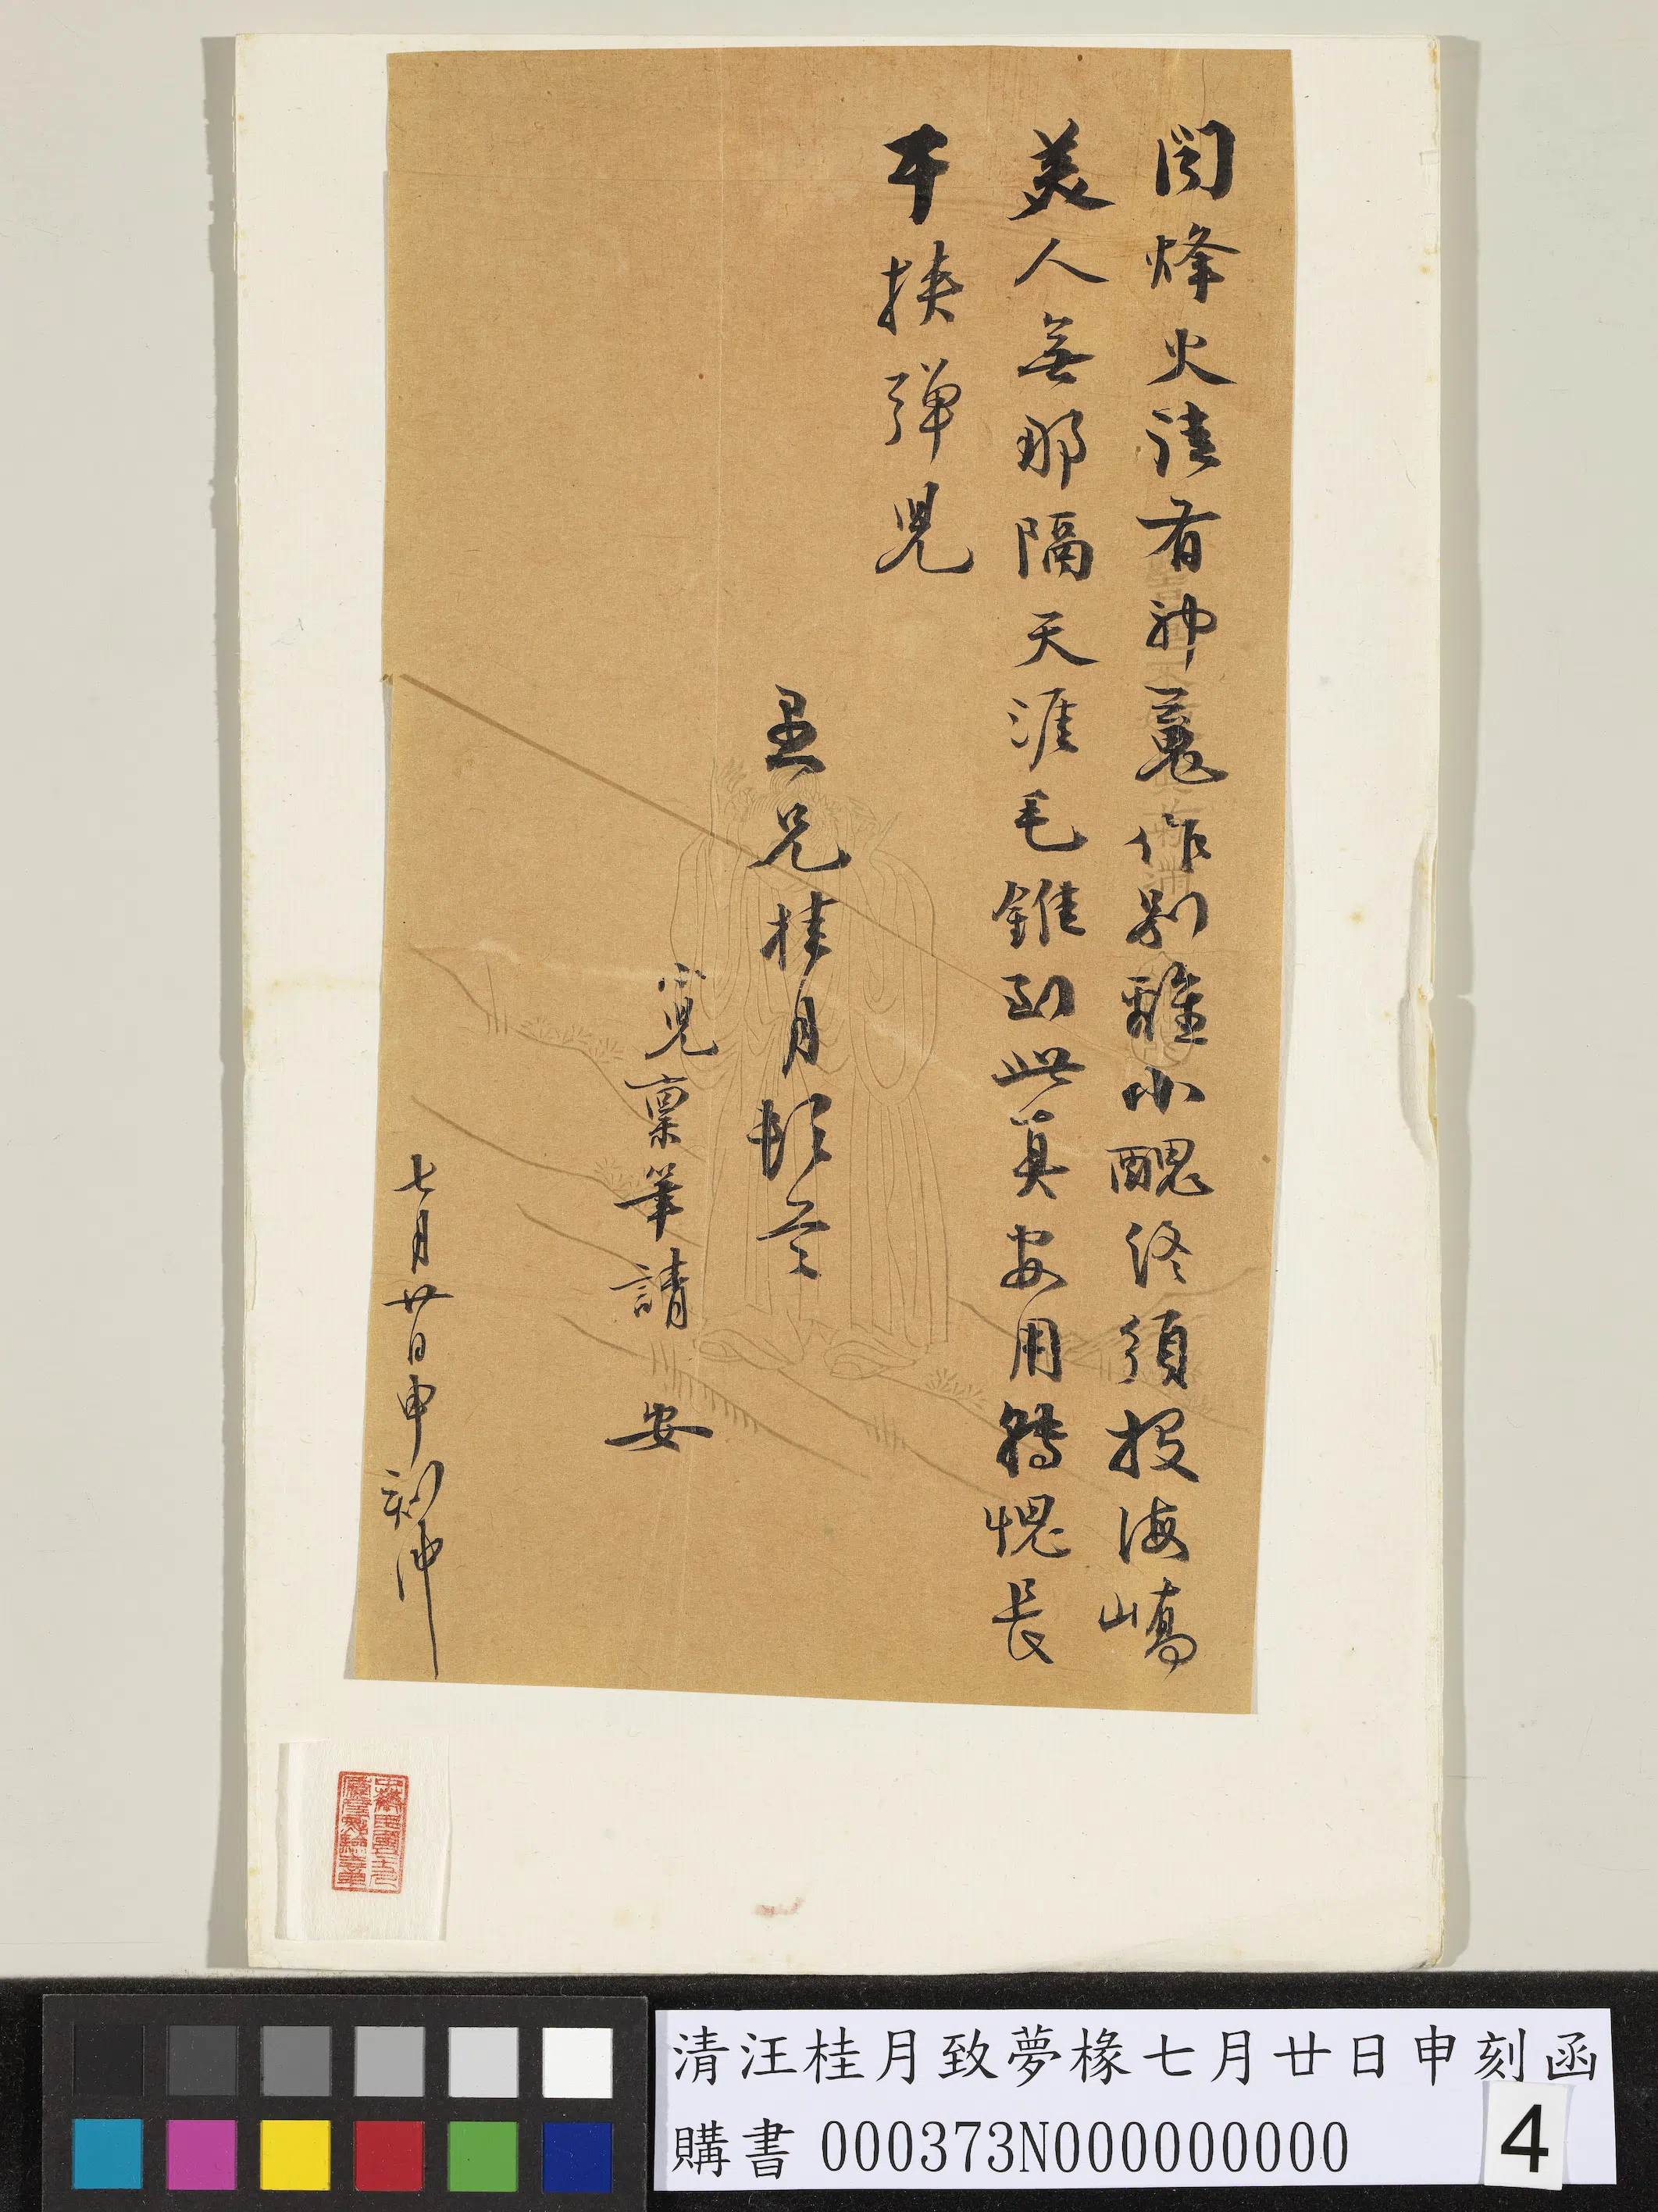 閱烽火詩有神鬼作別離小醜終須投海嶠
美人無那隔天涯毛錐到此真安用轉愧長
干挾彈兒
愚兄桂月頓首
寬稟筆請安
七月廿日申刻沖
清汪桂月致夢椽七月廿日申刻函
購書 000373N000000000
4